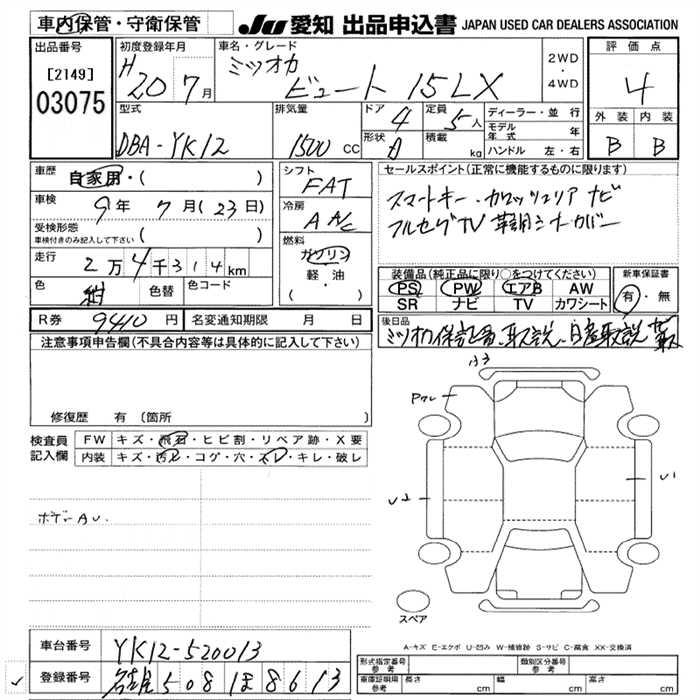 車内保管・守衛保管 JU 愛知 出品申込書 JAPAN USED CAR DEALERS ASSOCIATION
出品番号 初度登録年月 車名・グレード 評価点
[2149] H20 7月 ミツオカ ビュート 15LX 2WD・4WD 4
03075
型式 排気量 ドア 4 定員 5人 ディーラー・並行 外装 内装
DBA-YK12 1500 cc 形状 積載 kg モデル年式 年 B B
ハンドル 左・右
車歴 自家用・( ) シフト FAT セールスポイント(正常に機能するものに限ります)
車検 9年 7月(23日) 冷房 A A/C スマートキー・カロッツェリア ナビ
受検形態 フルセグTV 革調シートカバー
車検付きのみ記入して下さい ( ) 燃料 ガソリン
走行 2万4千314km 軽油
(・ )
装備品(純正品に限り○をつけてください) 新車保証書
PS PW エアB AW 有・無
SR ナビ TV カワシート
色 紺 色替 色コード
R券 9410円 名変通知期限 月 日 後日品
ミツオカ保証書、取説、日産取説
注意事項申告欄(不具合内容等は具体的に記入して下さい)
修復歴 有(箇所 )
検査員記入欄 FW キズ・飛石・ヒビ割・リペア跡・X要
内装 キズ・汚レ・コゲ・穴・スレ・キレ・破レ
U2 U1
ボデーAU.
スペア
A-キズ E-エクボ U-凹み W-補修跡 S-サビ C-腐食 XX-交換済
車台番号 YK12-520013
登録番号 名古屋 508 ほ 8613
形式指定番号 参考 類別区分番号 参考
車庫証明用 参考 長さ cm 幅 cm 高さ cm